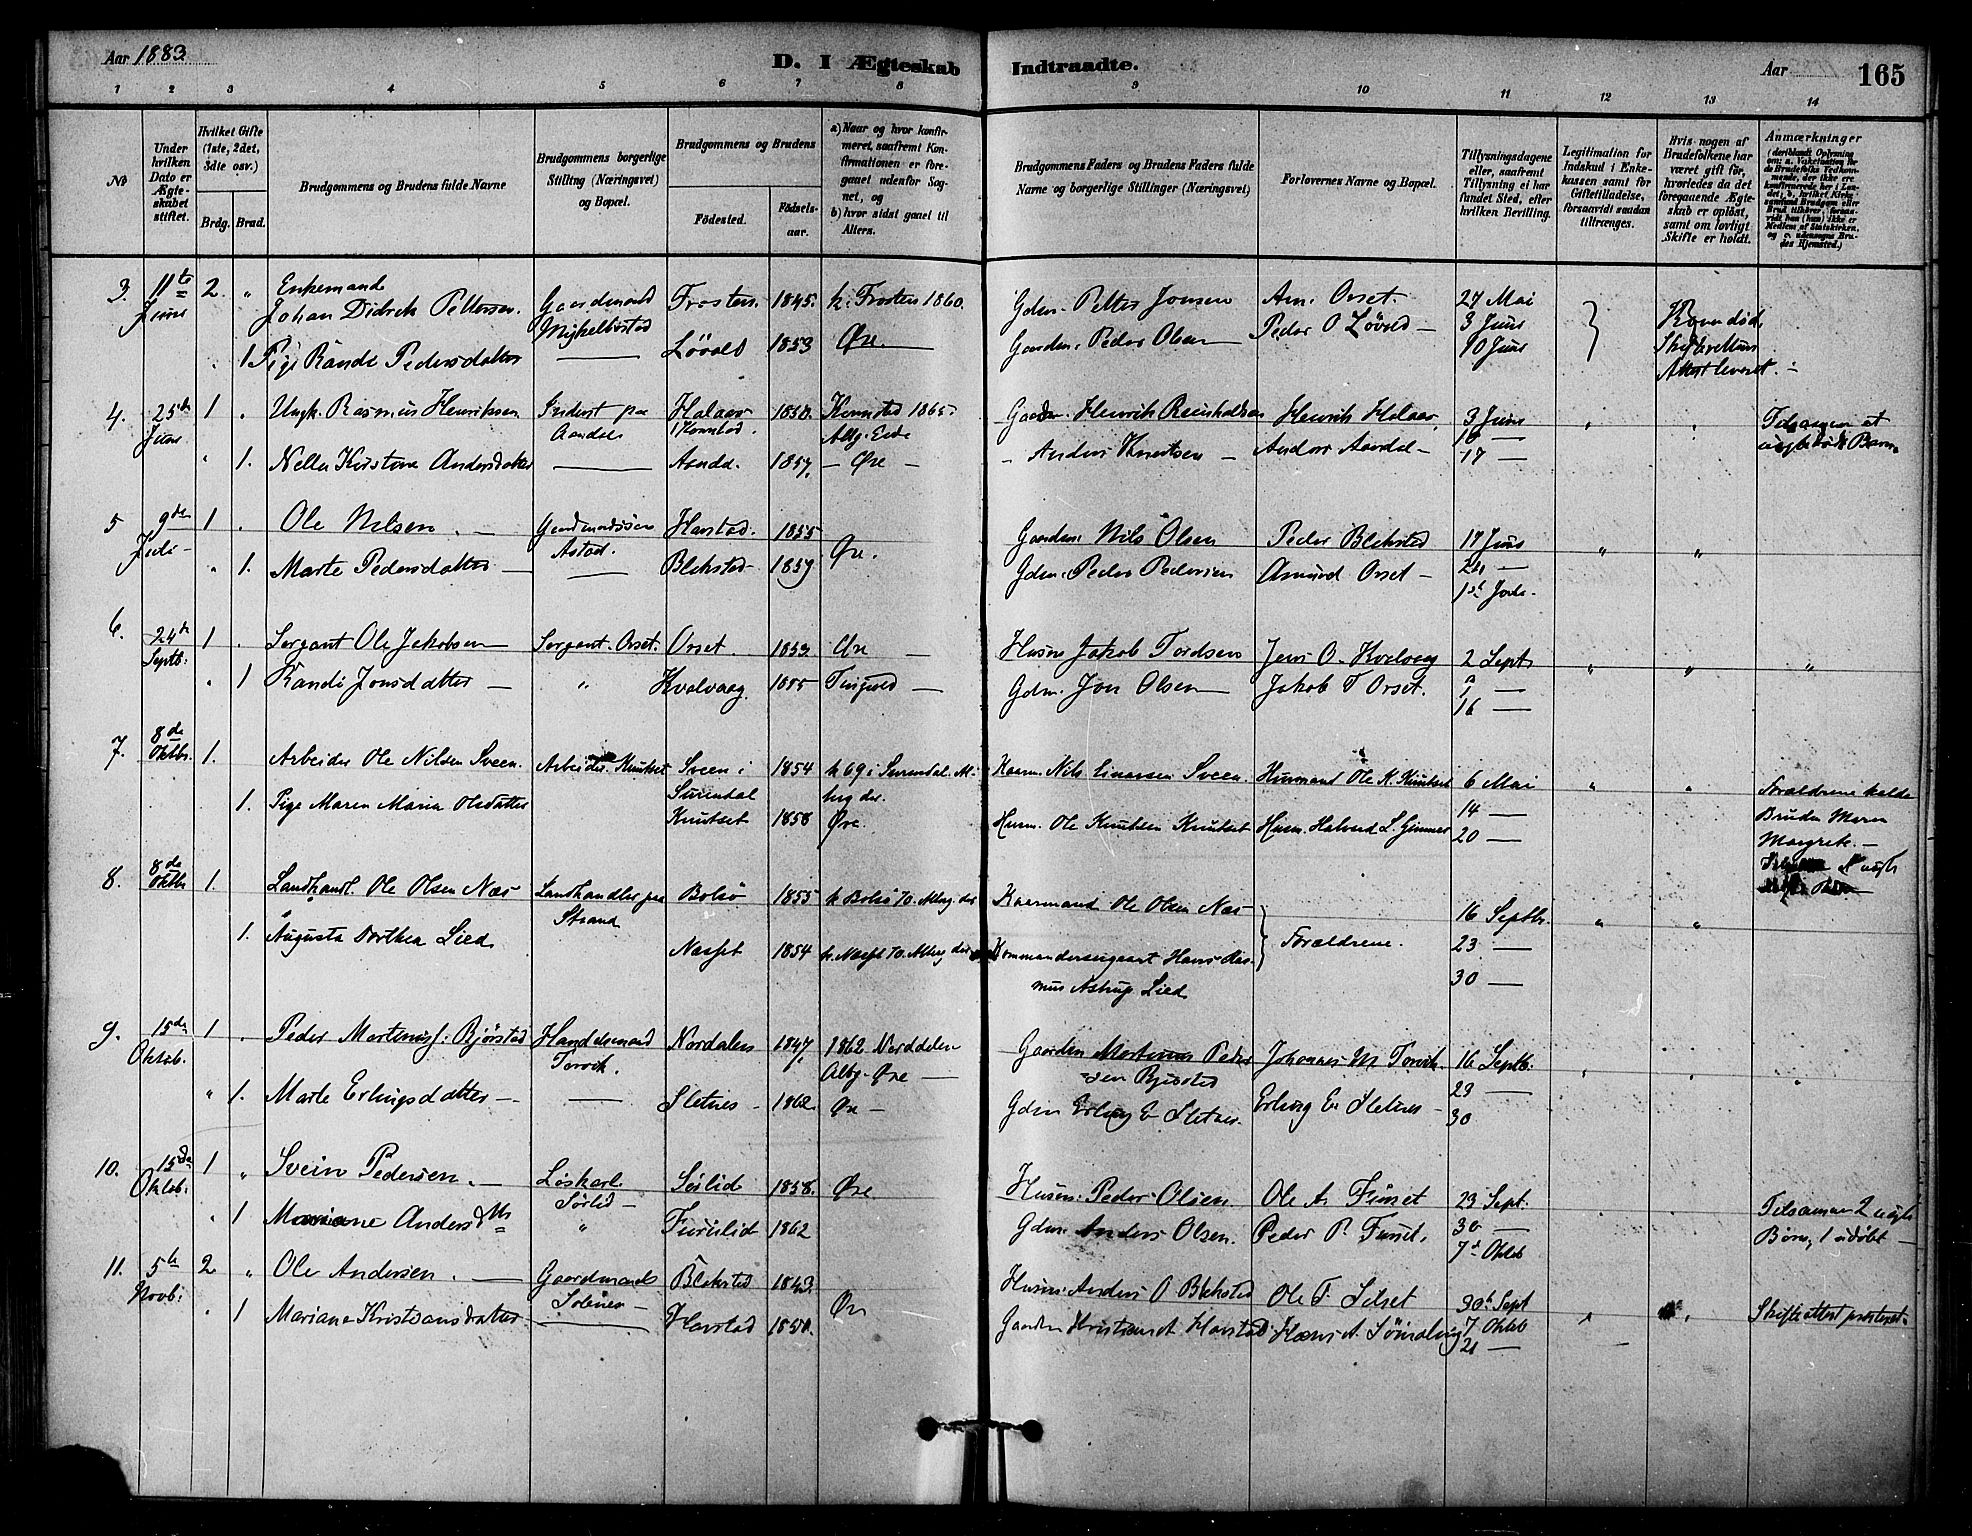 Aar 1883
D. I Ægteskab Indtraadte.
Aar 165
1 2 3 4 5 6 7 8 9 10 11 12 13 14
No
Under hvilken Dato er Ægteskabet stiftet.
Hvilket Gifte (1ste, 2det, 3die osv.)
Brdg. Brud.
Brudgommens og Brudens fulde Navne
Brudgommens borgerlige Stilling (Næringsvei) og Bopæl.
Brudgommens og Brudens
Födested.
Födselsaar.
a) Naar og hvor konfirmeret, saafremt Konfirmationen er foregaaet udenfor Sognet, og
b) hvor sidst gaaet til Alters.
Brudgommens Faders og Brudens Faders fulde Navne og borgerlige Stillinger (Næringsvei)
Forlovernes Navne og Bopæl.
Tillysningsdagene eller, saafremt Tillysning ei har fundet Sted, efter hvilken Bevilling.
Legitimation for Indskud i Enkekassen samt for Giftetilladelse, forsaavidt saadan tiltrænges.
Hvis nogen af Brudefolkene har været gift för, hvorledes da det foregaaende Ægteskab er oplöst, samt om lovligt Skifte er holdt.
Anmærkninger
3. 11te Juni 2. " Enkemand Johan Didrik Pettersen Gaardmand Frosten. 1845. k. Frosten 1860. Gdm. Petter Jonsen Am. Orset. 27 Mai
1 Pige Randi Pedersdatter Løvold 1853 Øre Gaardm. Peder Olsen Peder O Løvold 3 Juni 10 Juni Konen død, Skifterettens Attest leveret.
4. 25de Juni 1 " Ungk. Rasmus Henriksen Inderst paa Aandal Halaas i Kornstad. 1850. Kornstad 1865 Altg. Eide Henrik Reinholdsen Henrik Halaas, 3 Juni Tilsammen et uægte født Barn.
1. Nella Kristine Andersdatter 1857. Øre Anders Knutsen Anders 10 17
5 9de Juli 1 . Ole Nilsen Gaardmandssøn Astad. Harstad. 1855 Øre. Gaardm. Nils Olsen Peder Blekstad 17 Juni
1. Marte Pedersdatter Blekstad 1859 Gdm. Peder Pedersen Asmund Orset 24 1ste Juli
6. 24de Septb: 1 . Sergant Ole Jakobsen Sergant. Orset. Orset. 1853. Øre Husm Jakob Tordsen Jens O. Kvalvaag 2 Sept
1 Randi Jonsdatter " Kvalvaag 1855 Tingvold Gdm. Jon Olsen Jakob T Orset. 9 16
7. 8de Oktbr. 1. Arbeider Ole Nilsen Sveen. Arbeider. Knutset Sveen i Surendal 1854 k 69 i Surendal. Nils Einarsen Sveen. Husmand Ole K. Knutset 6 Mai
1. Pige Maren Maria Olsdatter Knutset 1858 Øre. Husm. Ole Knutsen Knutset Husm. Halvord L. Gimnes 14 20 Forældrene kalde Bruden Maren Margrete.
8. 8de Oktbr 1. Landhandl. Ole Olsen Næs Landhandler paa Strand Bolsö 1855 k Bolsö 70. Altrg. der Kaarmand Ole Olsen Næs Forældrene. 16 Septbr.
1. Augusta Dorthea Lied Næsset 1854 k. Næsset 70. Altrg der Kommandersergeant Hans Rasmus Astrup Lied 23 30
9. 15de Oktob. 1 . Peder Martinuss: Bjørstad Handelsmand Torvik. Nordalen 1847 1862 Norddalen Altg. Øre Gaardm Martinus Pedersen Bjørstad Johannes M Torvik. 16 Septb.
1. Marte Erlingsdatter Sletnes 1862. Øre Gdm Erling E Sletnes. Erling E Sletnes 23 30
10. 15de Oktob. 1 " Svein Pedersen. Løskarl Sørlid Sørlid 1858. Øre Husm. Peder Olsen Ole A. Funset 23 Sept. Tilsammen 2 uægte
1 Mariane Andersdtr " Furulid 1862 Gdm. Anders Olsen. Peder P. Funset. 30 7d Oktb Børn, 1 udøbt
11. 5te Novb: 2 " Ole Andersen. Gaardmand Solenes Blekstad 1843. Øre Husm. Anders O Blekstad Ole T. Silset 30te Sept
1 Mariane Kristiansdatter Harstad 1850. Gaardm Kristian A. Harstad Hans A. 7 Oktb 21 Skifteattest præsteret.